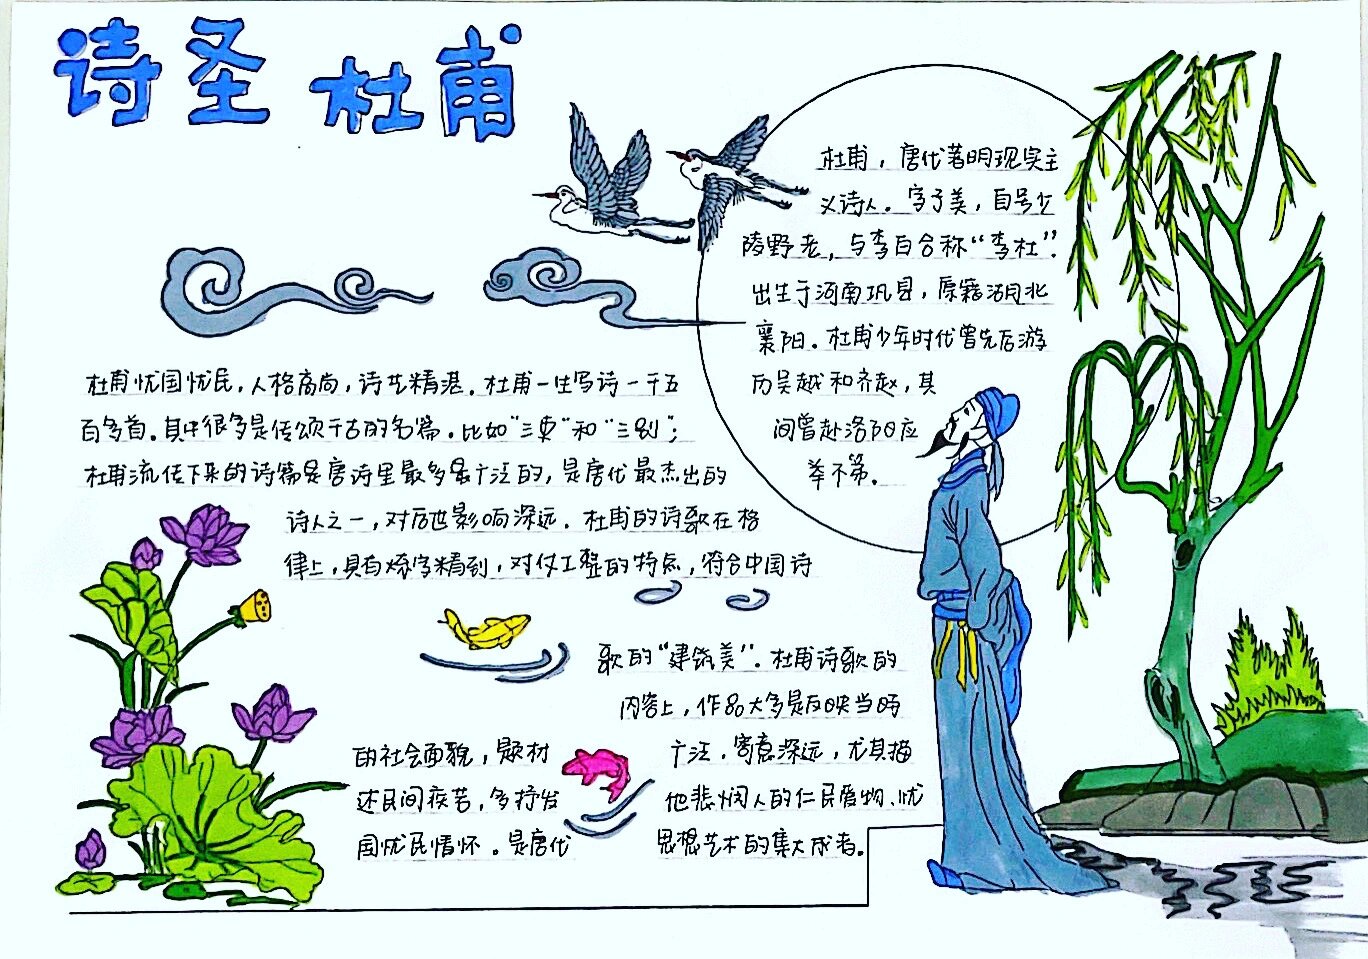 诗圣 杜甫
杜甫，唐代著明现实主
义诗人。字子美，自号少
陵野老，与李白合称“李杜”.
出生于河南巩县，原籍湖北
襄阳。杜甫少年时代曾先后游
历吴越和齐赵，其
间曾赴洛阳应
举不第。
杜甫忧国忧民，人格高尚，诗艺精湛。杜甫一生写诗一千五
百多首。其中很多是传颂千古的名篇，比如“三吏”和“三别”；
杜甫流传下来的诗篇是唐诗里最多最广泛的，是唐代最杰出的
诗人之一，对后世影响深远。杜甫的诗歌在格
律上，具有炼字精到，对仗工整的特点，符合中国诗
歌的“建筑美”。杜甫诗歌的
内容上，作品大多是反映当时
的社会面貌，题材 广泛，寓意深远，尤其描
述民间疾苦，多抒发 他悲悯人的仁民爱物、忧
国忧民情怀。是唐代 思想艺术的集大成者。